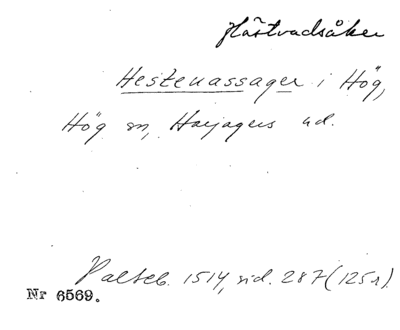 Hästvadsåker
Hesteuassager i Hög,
Hög sn, Harjagers hd.
Palteb. 1514, sid. 287 (125r).
Nr 6569.